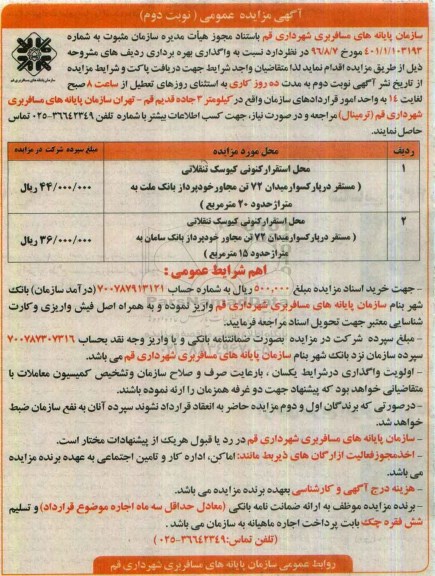 آگهی مزایده عمومی ( نوبت دوم)
سازمان پایانه های مسافربری شهرداری قم باستناد مجوز هیأت مدیره سازمان مثبوت به شماره
۴۰۱/۱/۱۰۳۱۹۳ مورخ ۹۶/۸/۷ در نظر دارد نسبت به واگذاری بهره برداری ردیف های مشروحه
ذیل از طریق مزایده اقدام نماید لذا متقاضیان واجد شرایط جهت دریافت پاکت و شرایط مزایده
از تاریخ نشر آگهی نوبت دوم به مدت ده روز کاری به استثنای روزهای تعطیل از ساعت ۸ صبح
لغایت ۱۴ به واحد امور قراردادهای سازمان واقع در کیلومتر ۳ جاده قدیم قم - تهران سازمان پایانه های مسافربری
شهرداری قم (ترمینال) مراجعه و در صورت نیاز، جهت کسب اطلاعات بیشتر با شماره تلفن ۳۶۶۴۲۳۴۹-۰۲۵ تماس
حاصل نمایند.
ردیف محل مورد مزایده مبلغ سپرده شرکت در مزایده
۱ محل استقرار کنونی کیوسک تنقلاتی
( مستقر در پارکسوار میدان ۷۲ تن مجاور خودپرداز بانک ملت به
متراژ حدود ۲۰ مترمربع ) ۴۴/۰۰۰/۰۰۰ ریال
۲ محل استقرار کنونی کیوسک تنقلاتی
( مستقر در پارکسوار میدان ۷۲ تن مجاور خودپرداز بانک سامان به
متراژ حدود ۱۵ مترمربع ) ۳۶/۰۰۰/۰۰۰ ریال
اهم شرایط عمومی :
- جهت خرید اسناد مزایده مبلغ ۵۰۰,۰۰۰ ریال به شماره حساب ۷۰۰۷۸۷۹۱۳۱۲۱ (درآمد سازمان) بانک
شهر بنام سازمان پایانه های مسافربری شهرداری قم واریز نموده و به همراه اصل فیش واریزی و کارت
شناسایی معتبر جهت تحویل اسناد مراجعه فرمایید.
- مبلغ سپرده شرکت در مزایده بصورت ضمانتنامه بانکی و یا واریز وجه نقد بحساب ۷۰۰۷۸۷۳۰۷۳۱۶
سپرده سازمان نزد بانک شهر بنام سازمان پایانه های مسافربری شهرداری قم می باشد.
- اولویت واگذاری در شرایط یکسان ، با رعایت صرف و صلاح سازمان و تشخیص کمیسیون معاملات با
متقاضیانی خواهد بود که پیشنهاد جهت دو غرفه همزمان را ارئه نموده باشند.
- درصورتی که برندگان اول و دوم مزایده حاضر به انعقاد قرارداد نشوند سپرده آنان به نفع سازمان ضبط
خواهد شد.
- سازمان پایانه های مسافربری شهرداری قم در رد یا قبول هر یک از پیشنهادات مختار است.
- اخذ مجوز فعالیت از ارگان های ذیربط مانند: اماکن، اداره کار و تامین اجتماعی به عهده برنده مزایده
می باشد.
- هزینه درج آگهی و کارشناسی بعهده برنده مزایده می باشد.
- برنده مزایده موظف به ارائه ضمانت نامه بانکی (معادل حداقل سه ماه اجاره موضوع قرارداد) و تسلیم
شش فقره چک بابت پرداخت اجاره ماهیانه به سازمان می باشد .
(تلفن تماس: ۳۶۶۴۲۳۴۹-۰۲۵)
روابط عمومی سازمان پایانه های مسافربری شهرداری قم